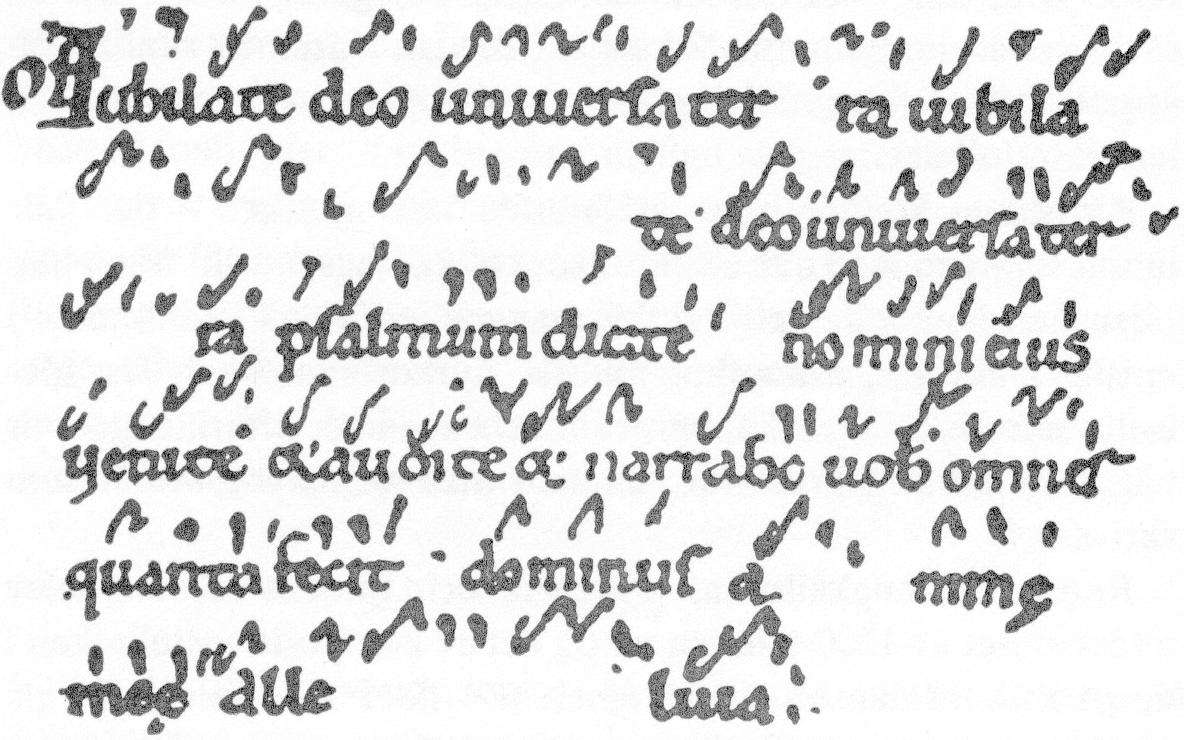 Of Iubilate deo uniuersa ter ra iubila
te deo uniuersa ter
ra psalmum dicite nomini eius
uenite & audite & narrabo uob omnia
quanta fecit dominus a nime
meę alle luia